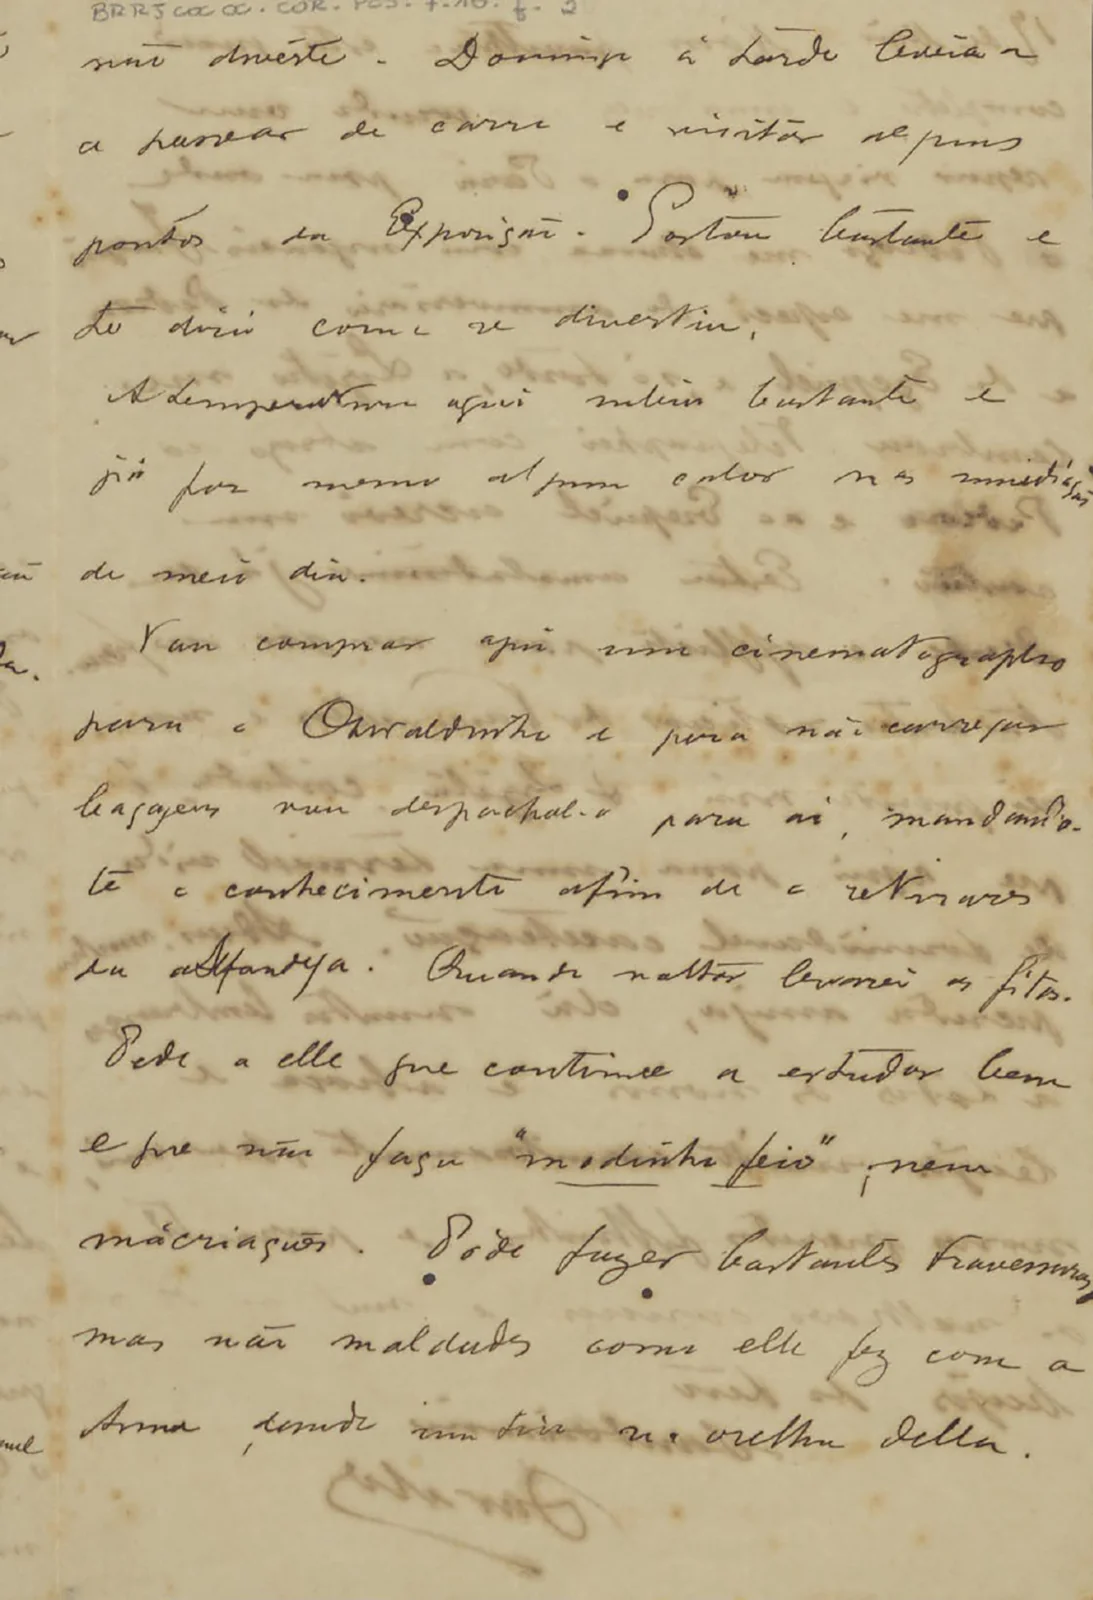 BRRJCOC OC. COR. PES. f. 2
não diverte. Domingo á tarde levei-a
a passear de carro e visitar alguns
pontos da Exposição. Gostou bastante e
te dirá como se divertiu.
A temperatura aqui subiu bastante e
já faz mesmo algum calor nas immediações
de meio dia.
Vou comprar aqui um cinematographo
para o Oswaldinho e para não carregar
bagagens vou despachal-o para ai, mandando-
te o conhecimento afim de o retirares
da alfandega. Quando voltar levarei as fitas.
Pede a elle que continue a estudar bem
e que não faça "modinho feio", nem
mácriações. Póde fazer bastantes travessuras,
mas não maldades como elle fez com a
Anna, dando um tiro na orelha della.